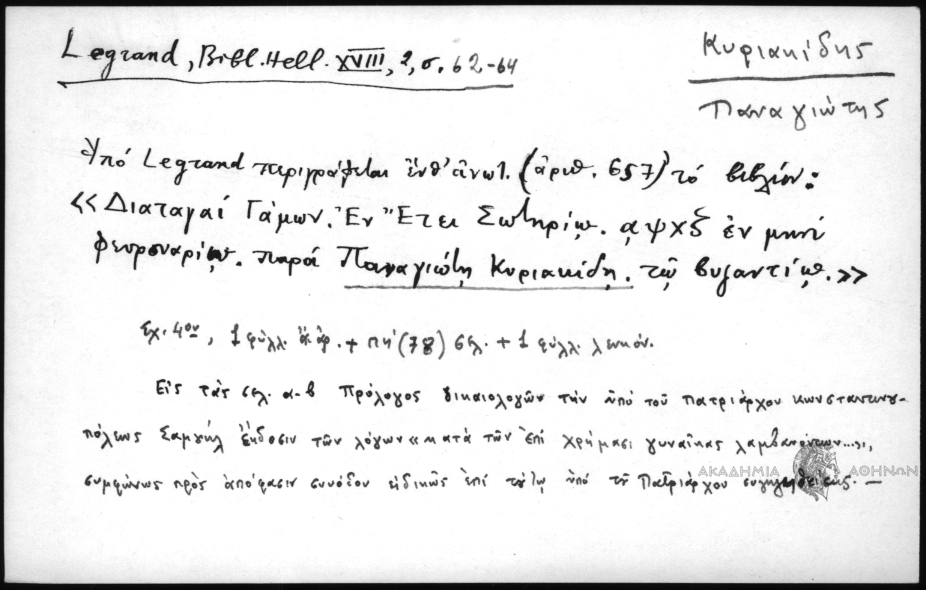 Legrand, Bibl. Hell. XVIII, 2, σ. 62-64
Κυριακίδης
Παναγιώτης
Ὑπό Legrand περιγράφεται ἔνθ' ἀνωτ. (ἀριθ. 657) τό βιβλίον:
«Διαταγαί Γάμων. Ἐν Ἔτει Σωτηρίῳ. αψχξ ἐν μηνί
φευρουαρίῳ. παρά Παναγιώτῃ Κυριακίδῃ. τῷ βυζαντίῳ.»
Σχ. 4ον, 1 φύλλ. ἀἀρ. + πή (78) σελ. + 1 φύλλ. λευκόν.
Εἰς τάς σελ. α-β Πρόλογος δικαιολογῶν τήν ὑπό τοῦ Πατριάρχου Κωνσταντινου-
πόλεως Σαμουήλ ἔκδοσιν τῶν λόγων «κατά τῶν ἐπί χρήμασι γυναῖκας λαμβανόντων...»,
συμφώνως πρός ἀπόφασιν συνόδου εἰδικῶς ἐπί τούτῳ ὑπό τοῦ Πατριάρχου συγκληθείσης. —
ΑΚΑΔΗΜΙΑ ΑΘΗΝΩΝ